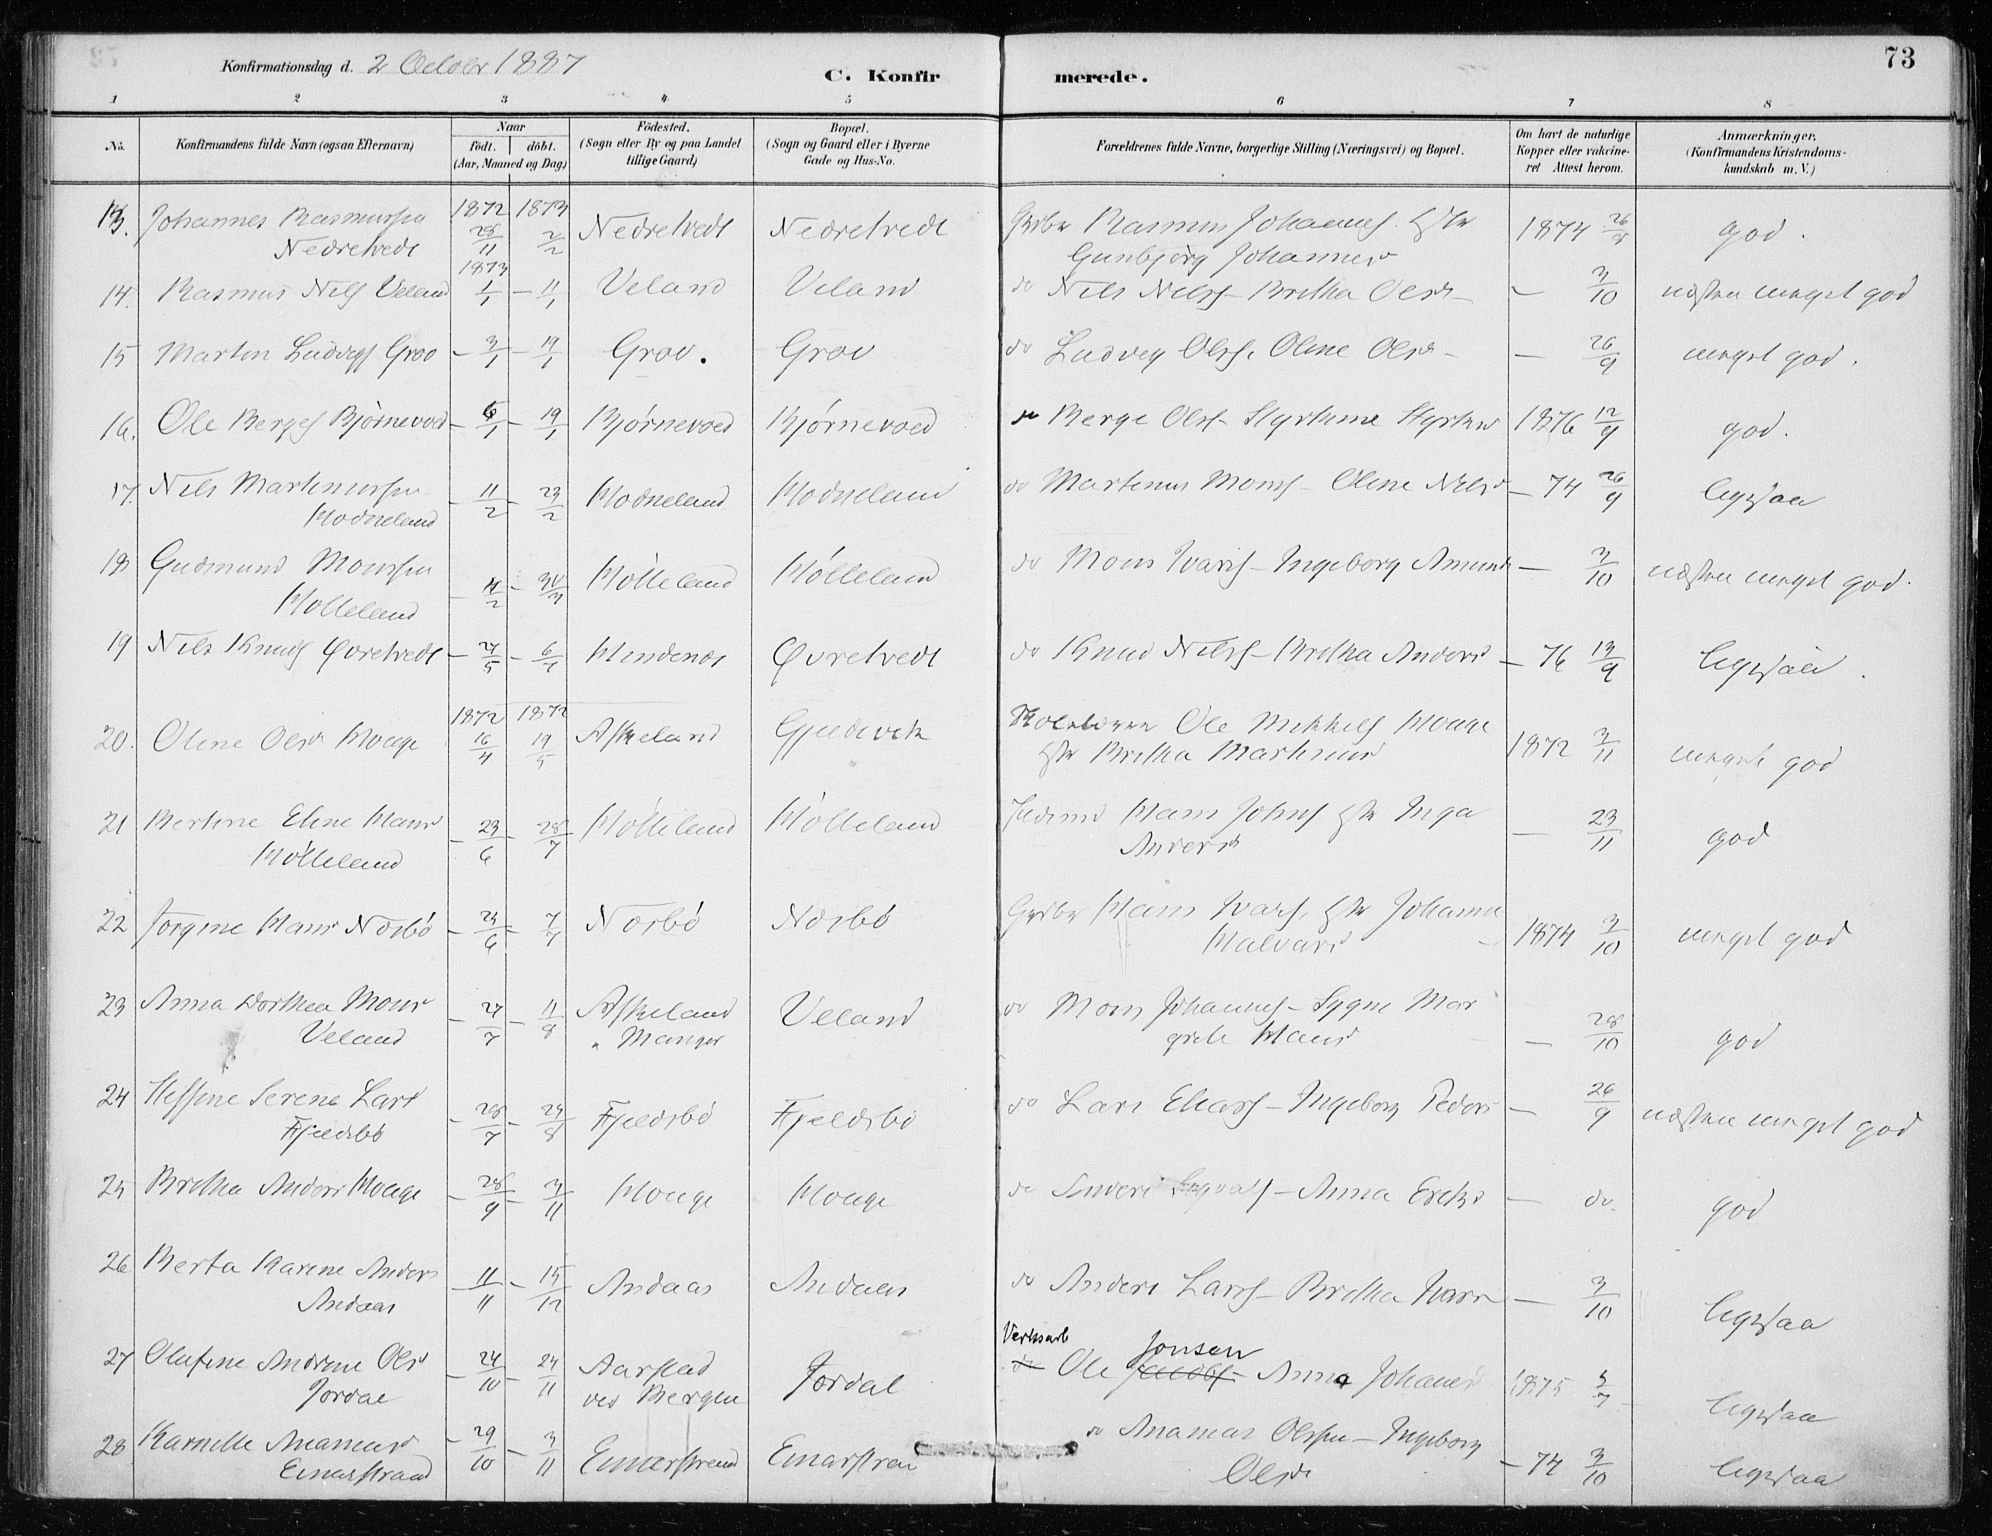 Konfirmationsdag d. 2 October 1887
C. Konfirmerede.
73
1 2 3 4 5 6 7 8
No.
Konfirmandens fulde Navn (ogsaa Efternavn)
Naar
födt. döbt.
(Aar, Maaned og Dag)
Födested.
(Sogn eller By og paa Landet tillige Gaard)
Bopæl.
(Sogn og Gaard eller i Byerne Gade og Hus-No.
Forældrenes fulde Navne, borgerlige Stilling (Næringsvei) og Bopæl.
Om havt de naturlige Kopper eller vakcineret Attest herom.
Anmærkninger.
(Konfirmandens Kristendomskundskab m. V.)
13. Johannes Rasmussen Nedretvedt 1872 28/11 1873 2/2 Nedretvedt Nedretvedt Grdbr Rasmus Johanness. Hstr Gunbjörg Johannesd 1874 26/9 god.
14. Rasmus Nilss Veland 1873 1/1 – 11/1 Veland Veland do Nils Nilss – Britha Olsd – – 3/10 næsten meget god
15 Marton Ludvigs Grov – 3/1 – 19/1 Grov. Grov do Ludvig Olss. Oline Olsd – – 26/9 meget god.
16. Ole Berges Bjørnevoed – 6/1 – 19/1 Bjørnevoed Bjørnevoed do Berge Olss – 1876 12/9 god.
17. Nils Martinussen Hodneland – 11/2 – 23/2 Hodneland Hodneland do Martinus Monss – Oline Nilsd – 74 26/9 ligesaa
18 Gudmund Monssen Hölleland – /2 – 30/3 Hölleland Hölleland do Mons Ivarss – Ingeborg Amunds – 3/10 næsten meget god.
19 Nils Knuds Øvretvedt – 27/5 – 6/7 Hindenes Øvretvedt do Knud Nilss – Britha Andersd – 76 13/9 ligesaa.
20. Oline Olsd Houge 1872 16/4 1872 19/5 Askeland Gjeldvik Ole Mikkels Houge Hstr Britha Martinusd 1872 3/11 meget god
21 Bertine Eline Hansd Hölleland – 23/6 – 28/7 Hölleland Hölleland Hans Johns Hstr Inga Andersd – 23/11 god
22 Jorgine Hansd Nosbö – 24/6 – 7/7 Nosbö Nosbö Grdbr Hans Ivarss. Hstr Johanna Halvard 1874 3/10 meget god
23 Anna Dorthea Monsd Veland – 27/7 – 11/8 Askeland " Manger Veland do Mons Johanness – Sygne Margrete Hansd – 28/10 god
24 Serene Larsd Fjeldsbö – 28/7 – 24/8 Fjeldsbö Fjeldsbö do Lars Eliass – Ingeborg Pedersd – 26/9 næsten meget god
25 Britha Anders Houge – 28/9 – 3/11 Houge Houge do – Anna Eriksd – do. god
26 Berta Karine Anders Andaas – 11/11 – 15/12 Andaas Andaas do Anders Larss – Britha Ivarsd – 3/10 ligesaa
27 Olufine Andrine Olsd Jordal – 24/10 – 24/11 Aarstad ved Bergen Jordal Verksarb do Ole Jacobs – Jonsen Anna Johansd 1875 5/7 ligesaa
28 Anamiasd Einarstrand – 29/10 – 3/11 Einarstrand Einarstran do Anamias Olssen – Ingeborg Olsd – 74 3/10 ligesaa